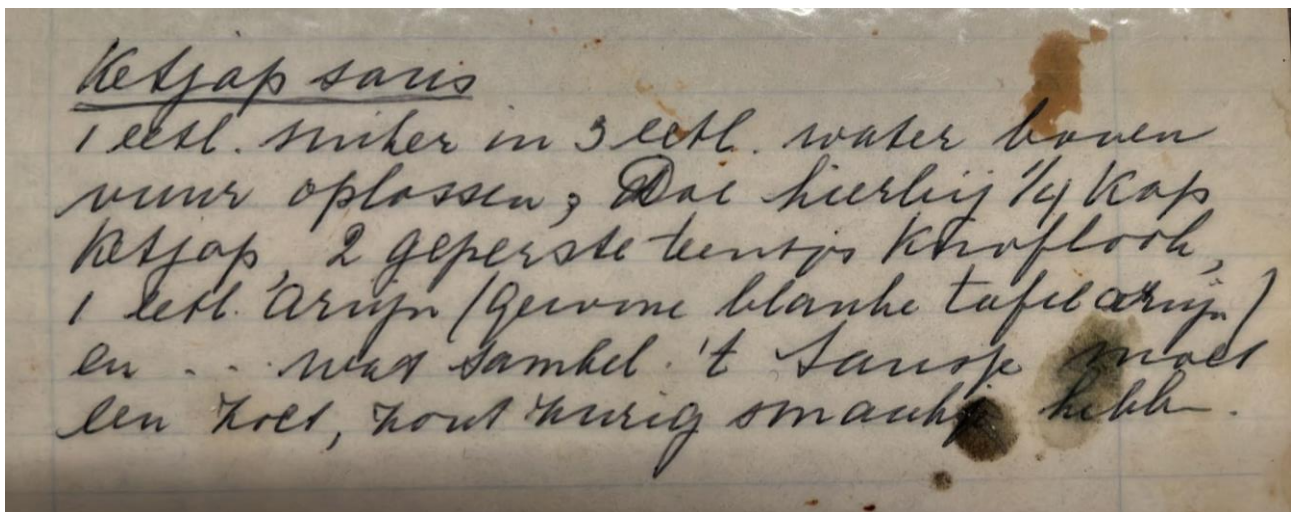 Ketjap saus
1 eetl. suiker in 3 eetl. water boven
vuur oplossen; Doe hierbij 1/4 kop
Ketjap, 2 geperste teentjes Knoflook,
1 eetl. azijn (gewone blanke tafelazijn)
en ... wat sambal. 't Sausje moet
een zoet, zout zurig smaakje hebben.